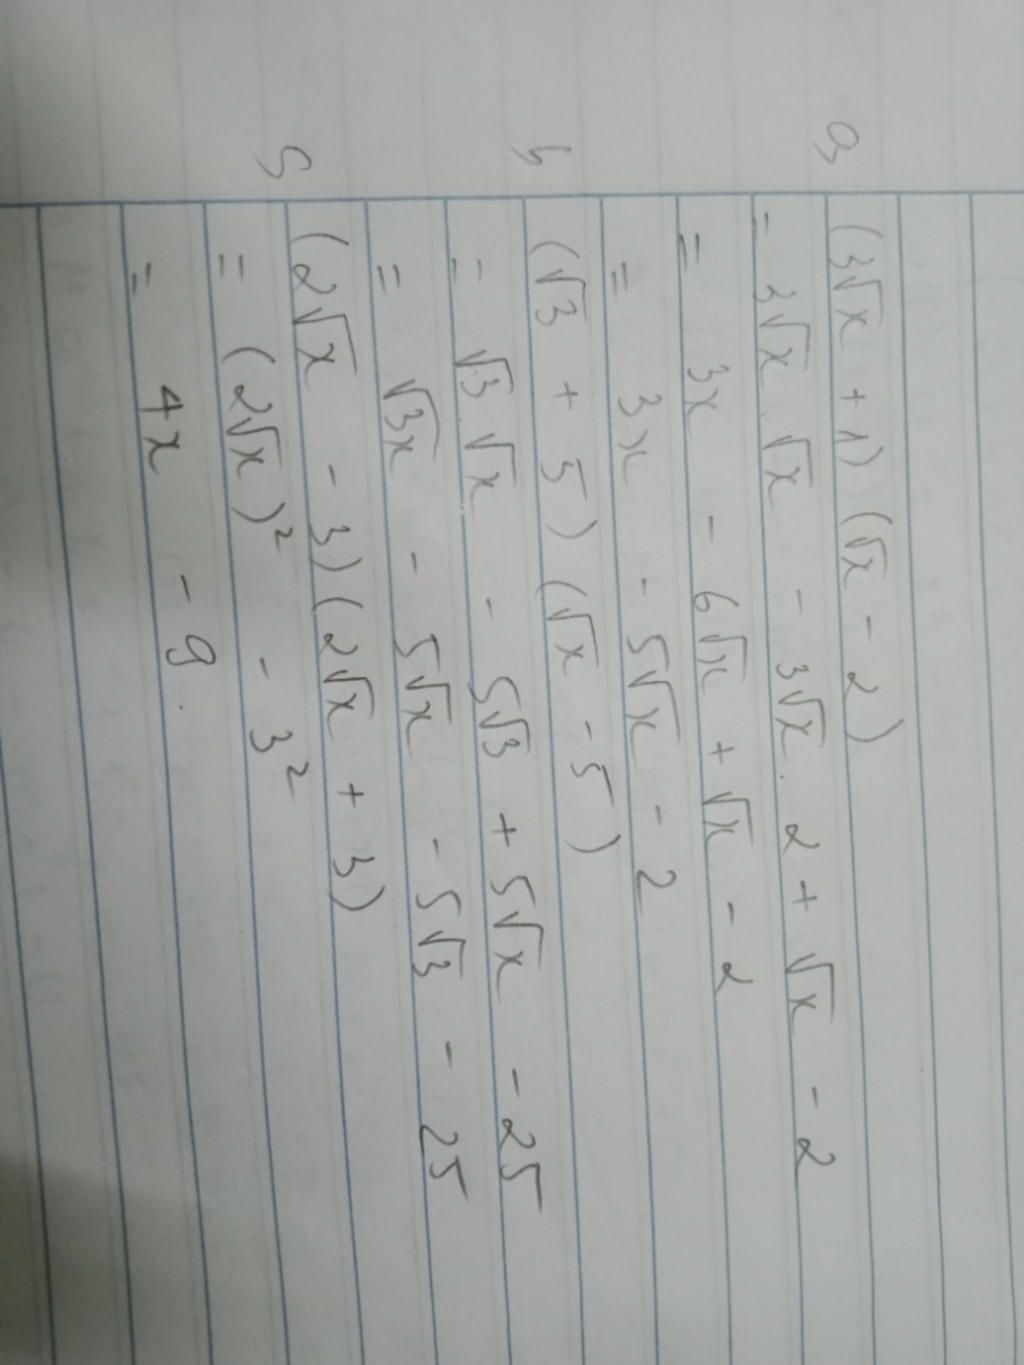 a, (3√x + 1) (√x - 2)
= 3√x . √x - 3√x . 2 + √x - 2
= 3x - 6√x + √x - 2
= 3x - 5√x - 2
b, (√3 + 5) (√x - 5)
= √3 . √x - 5√3 + 5√x - 25
= √3x - 5√x - 5√3 - 25
c, (2√x - 3) (2√x + 3)
= (2√x)² - 3²
= 4x - 9.